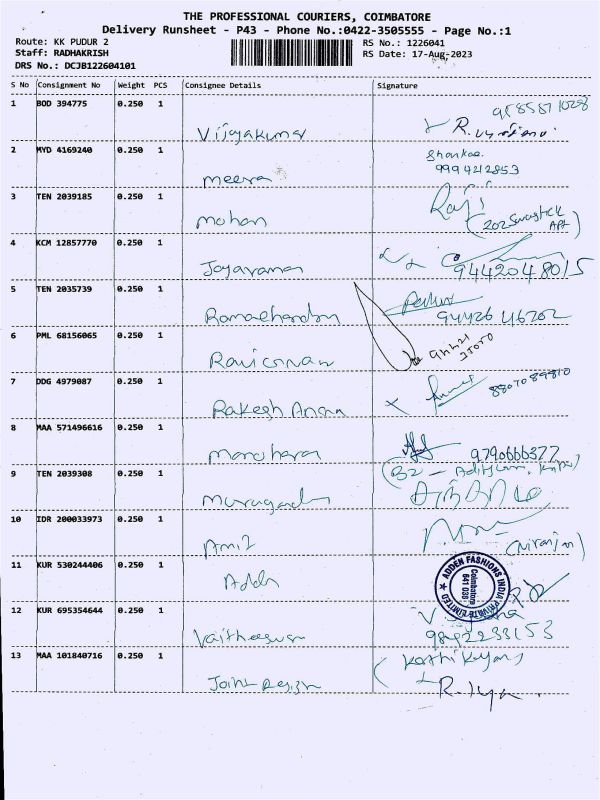 THE PROFESSIONAL COURIERS, COIMBATORE
Delivery Runsheet - P43 - Phone No.:0422-3505555 - Page No.:1
Route: KK PUDUR 2
RS No.: 1226041
Staff: RADHAKRISH
RS Date: 17-Aug-2023
DRS No.: DCJB122604101
S No Consignment No Weight PCS Consignee Details Signature
1 BOD 394775 0.250 1 Vijayakumar
2 MYD 4169240 0.250 1 meera Shankar
3 TEN 2039185 0.250 1 mohan Raji
(202 Swastick Apt)
4 KCM 12857770 0.250 1 Jayaraman
9442048015
5 TEN 2035739 0.250 1 Ramachandran
9442646702
6 PML 68156065 0.250 1
7 DDG 4979087 0.250 1 Rakesh Anan 8807089810
8 MAA 571496616 0.250 1 manoharan 9790666377
9 TEN 2039308 0.250 1
10 IDR 200033973 0.250 1 Amit (Niranjan)
11 KUR 530244406 0.250 1
ADDEN FASHIONS INDIA PRIVATE LIMITED
Coimbatore
12 KUR 695354644 0.250 1
13 MAA 101840716 0.250 1